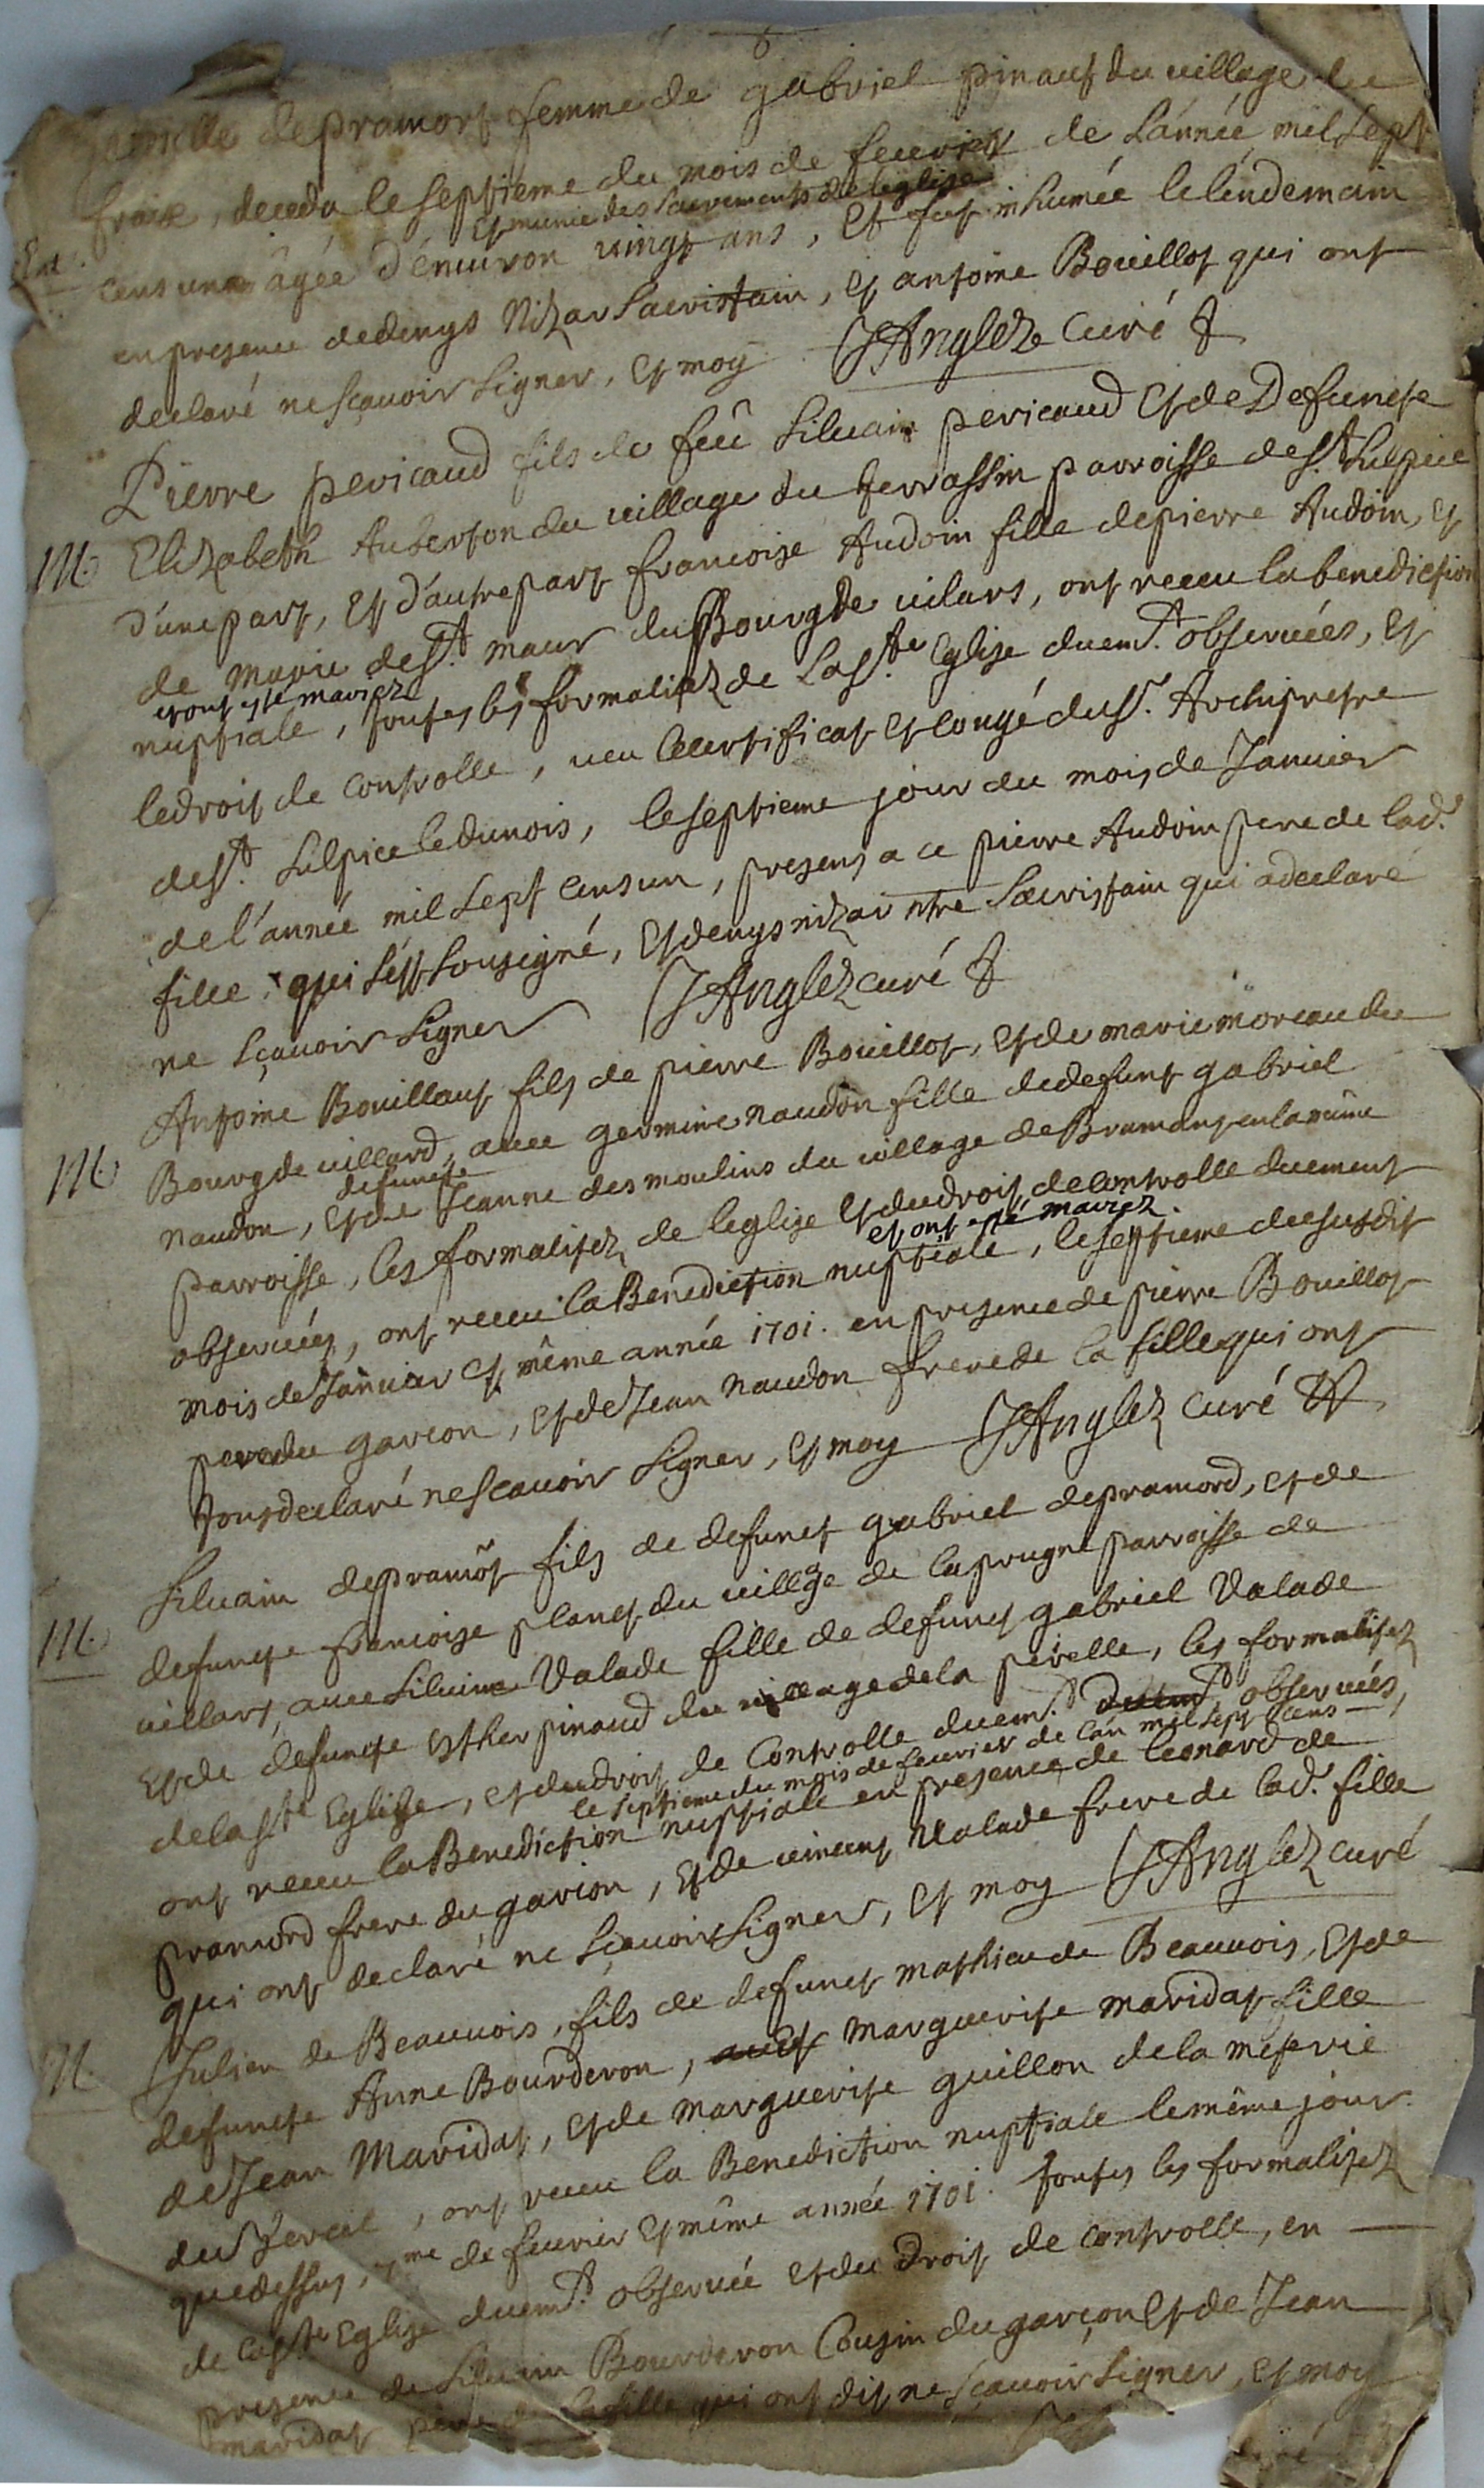 depramort femme de gabriel pinaut du village de
fraise, deceda le septieme du mois de feuvrier de l'année mil sept
et munie des sacrements de l'eglise
Ent.
cens un âgée d'énuiron vingt ans, et fut inhumée le léndemain
en presence de denys Nizar Sacristain, et antoine Bouillot qui ont
declaré ne sçauoir signer, et moy JAnglez Curé
Pierre pericaud fils de feû Siluain pericaud et de Defuncte
M.
Elizabeth Auberton du village du terrassin parroisse de st. Sulpice
d'une part, et d'autre part francoise Audoin fille de pierre Audoin, et
de Marie de st. maur du Bourg de uilars, ont receu la benediction
et ont esté mariez
nuptiale, toutes les formalitez de la ste. Eglise duemt. obseruées, et
le droit de controlle, ueu le certificat et congé du sr. Archipretre
de st. Sulpice le dunois, le septieme jour du mois de Januier
de l'année mil sept cens un, presens a ce pierre Audoin pere de lad.
fille qui s'est sousigné, et denys nizar ntre Sacristain qui a declaré
ne sçauoir signer JAnglez curé
Antoine Bouillaut fils de pierre Bouillot, et de marie moreau du
M.
Bourg de uillard, auec germine naudon fille de defunt gabriel
defuncte
naudon, et de Jeanne des moulins du uillage de Bramant en la même
parroisse, les formalitez de l'eglise et du droit de controlle duement
et ont esté mariez
obseruées, ont receu la Benediction nuptiale, le septieme du susdit
mois de Januier et même année 1701. en presence de pierre Bouillot
pere du garcon, et de Jean naudon frere de la fille qui ont
tous declaré ne scauoir signer, et moy JAnglez Curé
Siluain depramôt fils de defunct gabriel depramord, et de
M.
defuncte francoise planet du uillage de la prugne parroisse de
uillars, auec Siluine Valade fille de defunct gabriel Valade
et de defuncte Esther pinaud du uillage de la perelle, les formalitez
de la ste Eglise, et du droit de Controlle duemt. obseruées,
le septieme du mois de feurier de l'an mil sept cens
ont receu la Benediction nuptiale en presence de leonard de
pramord frere du garcon, et de uincent Valade frere de lad. fille
qui ont declaré ne sçauoir signer, et moy JAnglez curé
M.
Julien de Beauuois, fils de defunct mathieu de Beauuois, et de
defuncte Anne Bourderon, et marguerite maridat fille
de Jean Maridat, et de marguerite guillon de la méterie
du , ont receu la Benediction nuptiale le même jour
que dessus, 7me de feurier et même année 1701. toutes les formalitez
de la ste Eglise duemt. obserué et du Droit de controlle, en
presence de Siluain Bourderon Cousin du garçon et de Jean
maridat pere de la fille qui ont dit ne sçauoir signer, et moy